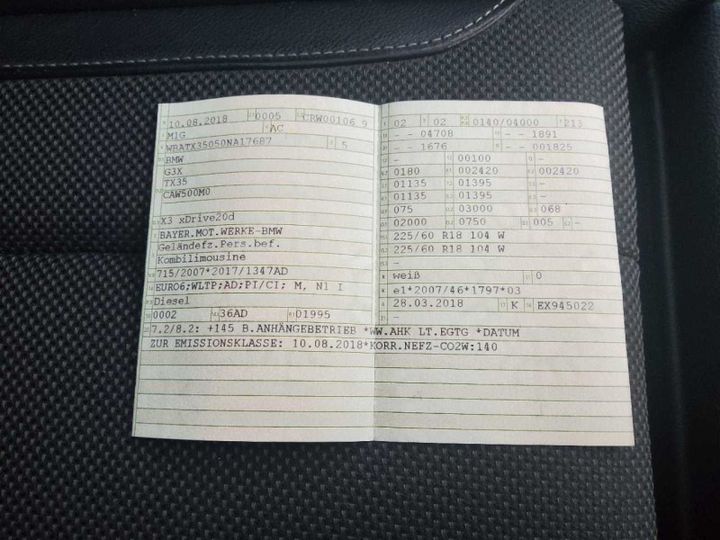 10.08.2018 0005 CRW00106 9
M1G AC
5
BMW
G3X
TX35
CAW500M0
X3 xDrive20d
BAYER.MOT.WERKE-BMW
Geländefz.Pers.bef.
Kombilimousine
715/2007*2017/1347AD
EURO6;WLTP;AD;PI/CI; M, N1 I
Diesel
0002 36AD 01995
7.2/8.2: +145 B.ANHÄNGEBETRIEB *WW.AHK LT.EGTG *DATUM
ZUR EMISSIONSKLASSE: 10.08.2018*KORR.NEFZ-CO2W:140
02 02 0140/04000 213
- - 04708 - - 1891
- - 1676 - - 001825
- 00100 -
0180 002420 002420
01135 01395 -
01135 01395 -
075 03000 068
02000 0750 005 -
225/60 R18 104 W
225/60 R18 104 W
-
weiß 0
e1*2007/46*1797*03
28.03.2018 K EX945022
-